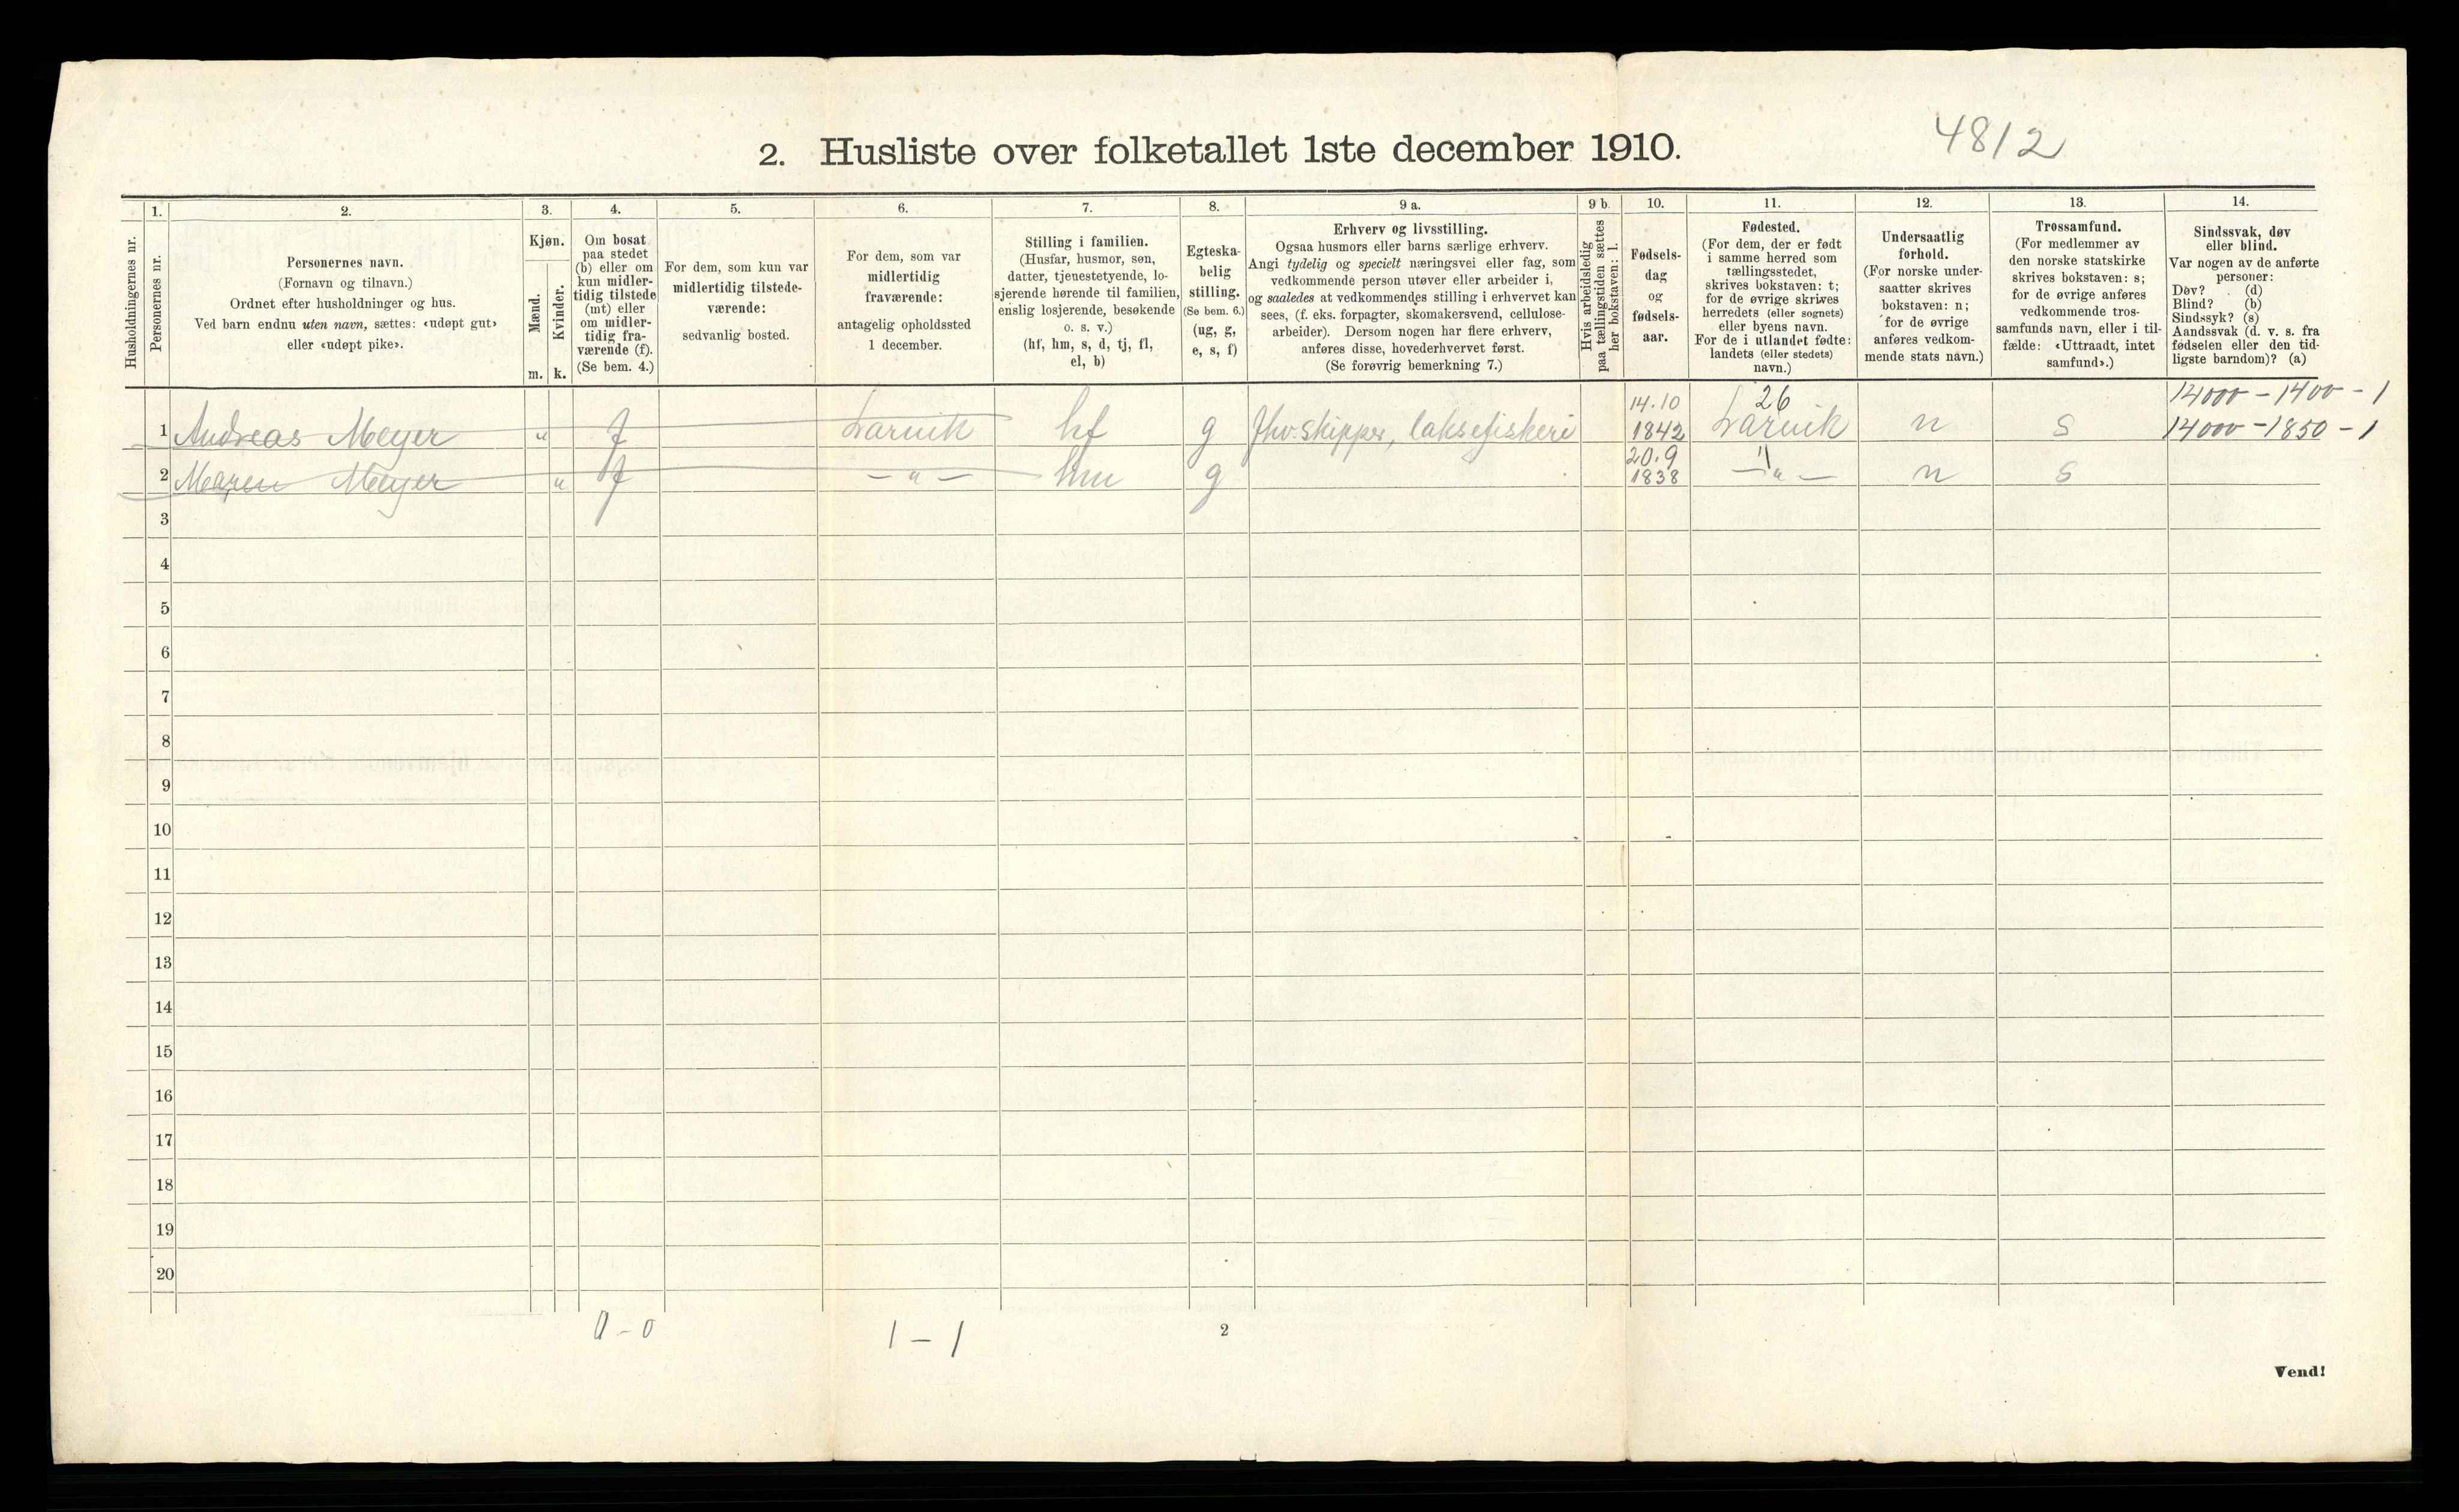 4812
2. Husliste over folketallet 1ste december 1910.
Husholdningernes nr.
1.
Personernes nr.
2.
Personernes navn.
(Fornavn og tilnavn.)
Ordnet efter husholdninger og hus.
Ved barn endnu uten navn, sættes: «udøpt gut»
eller «udøpt pike».
3.
Kjøn.
Mænd.
Kvinder.
m. k.
4.
Om bosat
paa stedet
(b) eller om
kun midler-
tidig tilstede
(mt) eller
om midler-
tidig fra-
værende (f).
(Se bem. 4.)
5.
For dem, som kun var
midlertidig tilstede-
værende:
sedvanlig bosted.
6.
For dem, som var
midlertidig
fraværende:
antagelig opholdssted
1 december.
7.
Stilling i familien.
(Husfar, husmor, søn,
datter, tjenestetyende, lo-
sjerende hørende til familien,
enslig losjerende, besøkende
o. s. v.)
(hf, hm, s, d, tj, fl,
el, b)
8.
Egteska-
belig
stilling.
(Se bem. 6.)
(ug, g,
e, s, f)
9 a.
Erhverv og livsstilling.
Ogsaa husmors eller barns særlige erhverv.
Angi tydelig og specielt næringsvei eller fag, som
vedkommende person utøver eller arbeider i,
og saaledes at vedkommendes stilling i erhvervet kan
sees, (f. eks. forpagter, skomakersvend, cellulose-
arbeider). Dersom nogen har flere erhverv,
anføres disse, hovederhvervet først.
(Se forøvrig bemerkning 7.)
9 b.
Hvis arbeidsledig
paa tællingstiden sættes
her bokstaven: l.
10.
Fødsels-
dag
og
fødsels-
aar.
11.
Fødested.
(For dem, der er født
i samme herred som
tællingsstedet,
skrives bokstaven: t;
for de øvrige skrives
herredets (eller sognets)
eller byens navn.
For de i utlandet fødte:
landets (eller stedets)
navn.)
12.
Undersaatlig
forhold.
(For norske under-
saatter skrives
bokstaven: n;
for de øvrige
anføres vedkom-
mende stats navn.)
13.
Trossamfund.
(For medlemmer av
den norske statskirke
skrives bokstaven: s;
for de øvrige anføres
vedkommende tros-
samfunds navn, eller i til-
fælde: «Uttraadt, intet
samfund».)
14.
Sindssvak, døv
eller blind.
Var nogen av de anførte
personer:
Døv? (d)
Blind? (b)
Sindssyk? (s)
Aandssvak (d. v. s. fra
fødselen eller den tid-
ligste barndom)? (a)
14000 - 1400 - 1
14.10 26
1 Andreas Meyer " f Larvik hf g Fhv. skipper, laksefiskeri 1842 Larvik n s 14000 - 1850 - 1
20.9 "
2 Maren Meyer " f - " - hm g 1838 - " - n s
3
4
5
6
7
8
9
10
11
12
13
14
15
16
17
18
19
20
0 - 0 1 - 1 2
Vend!